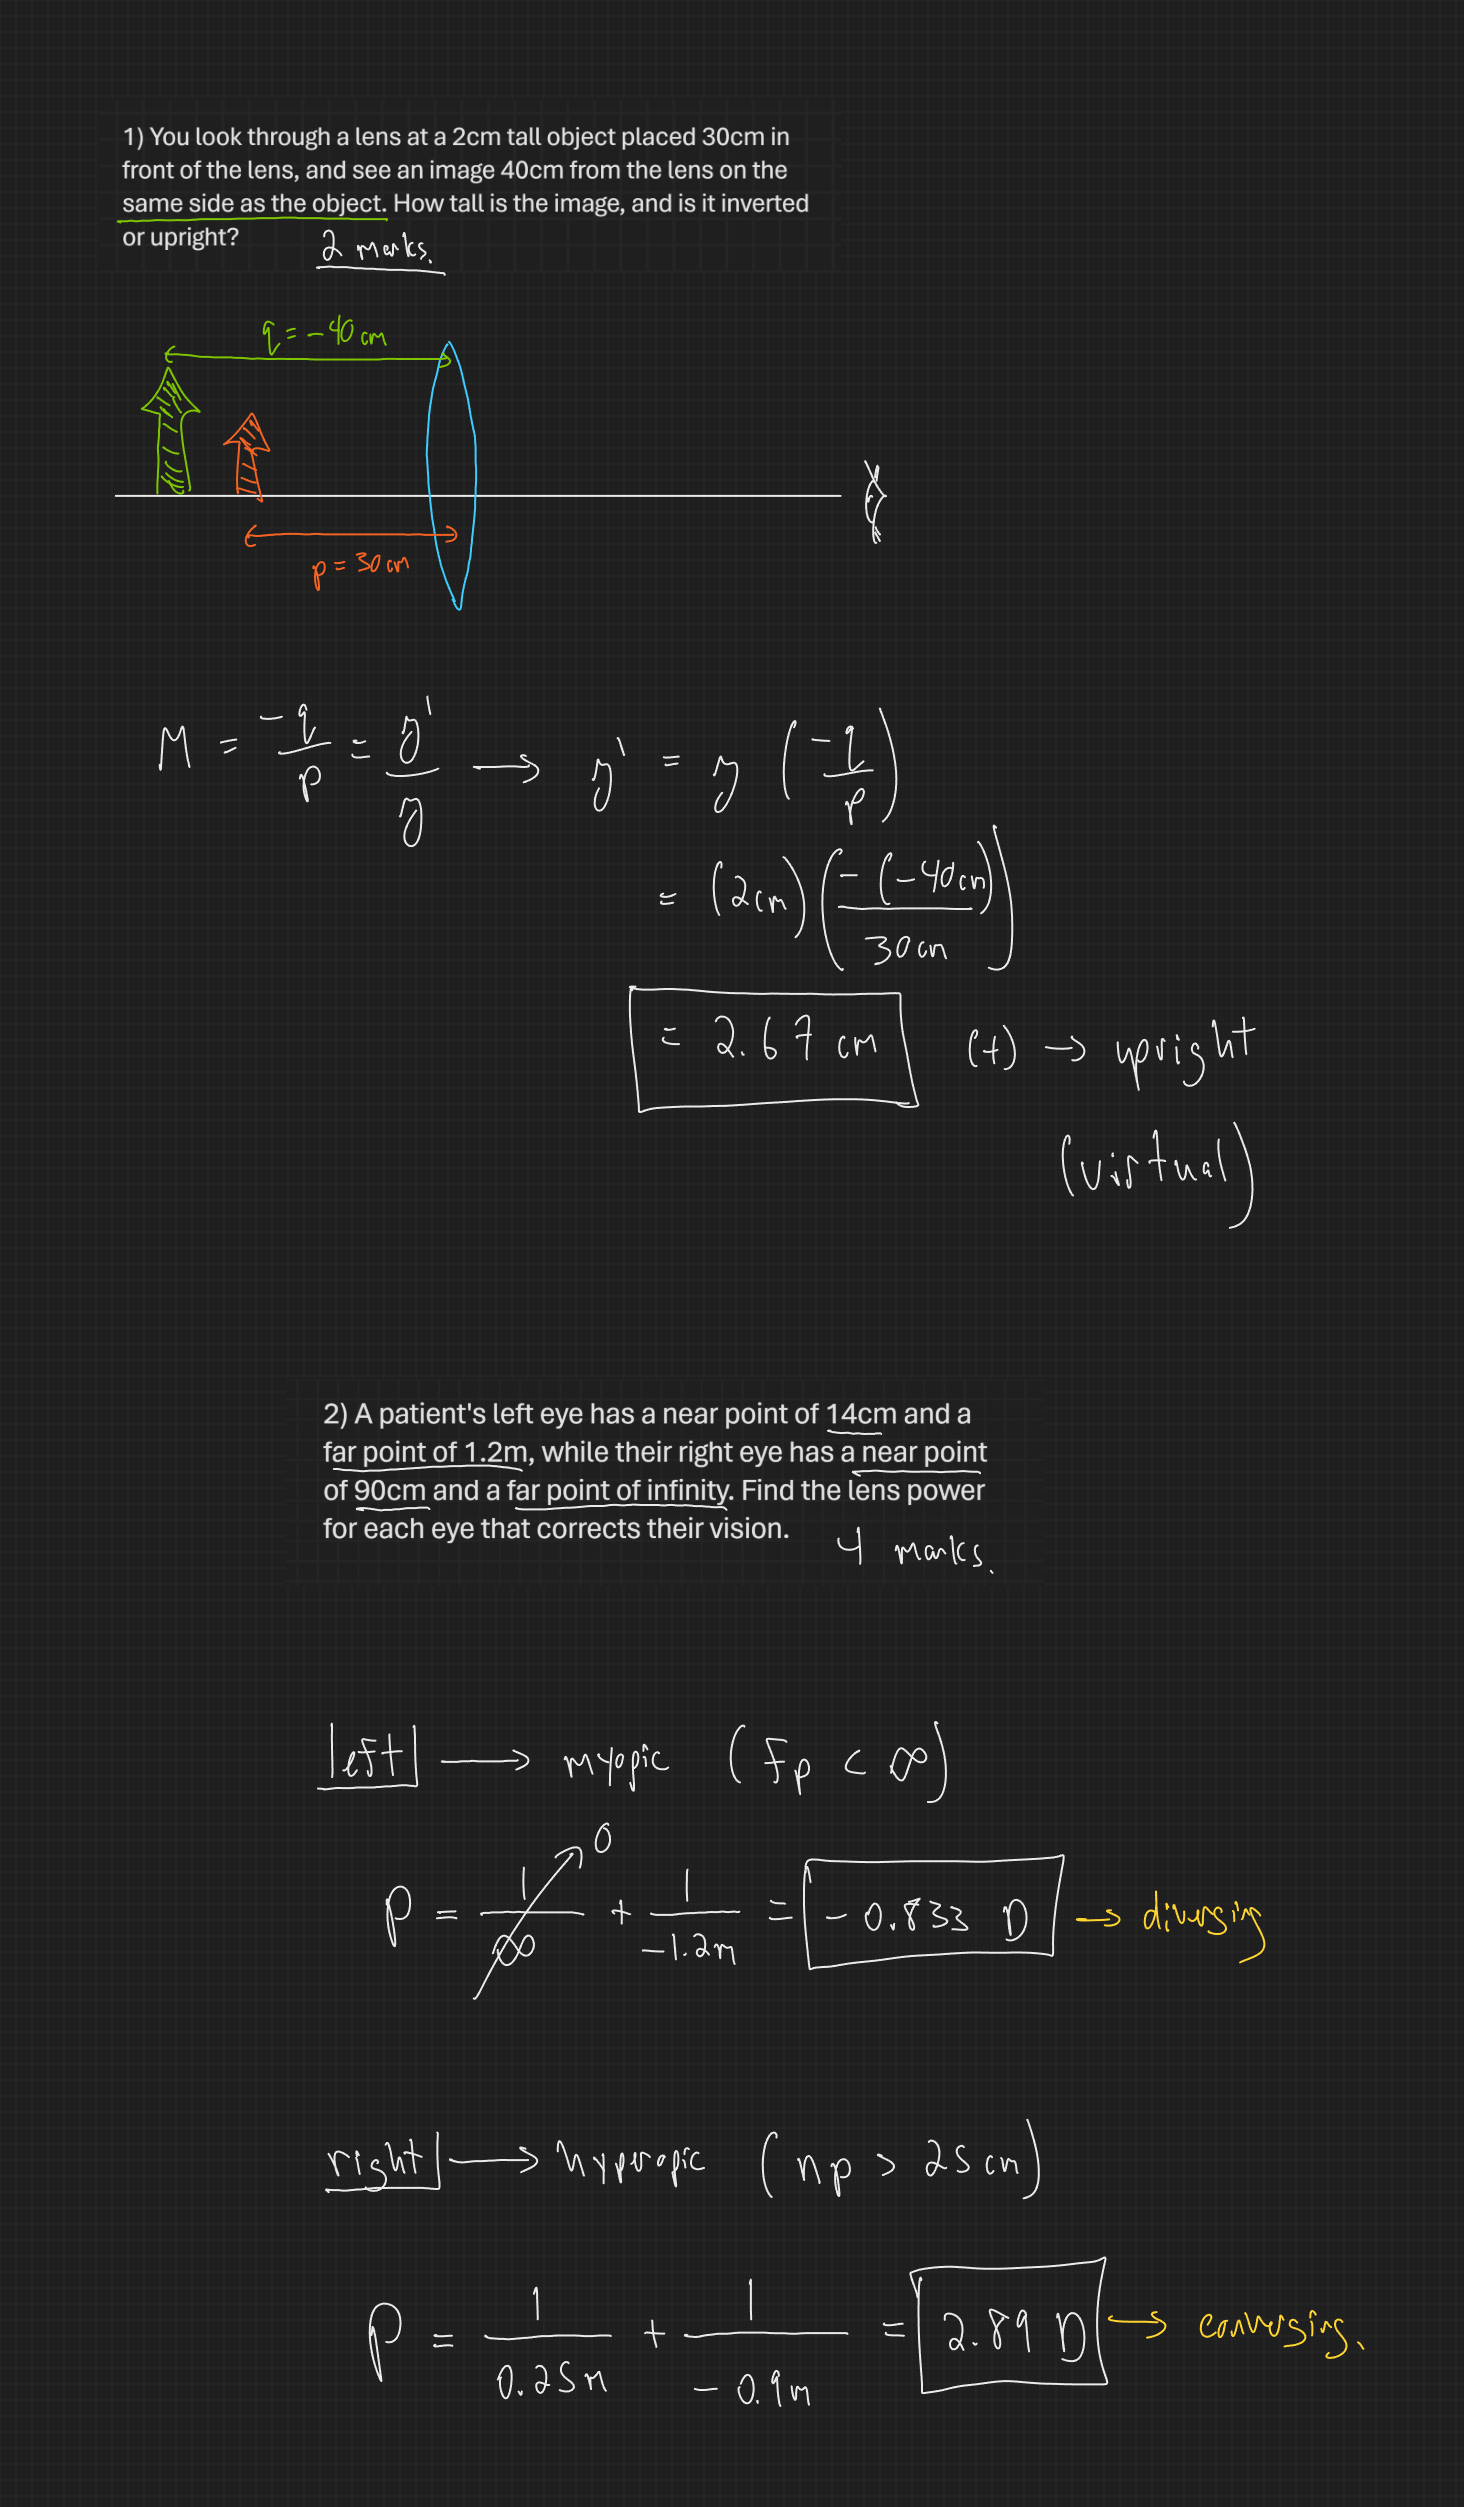 1) You look through a lens at a 2cm tall object placed 30cm in
front of the lens, and see an image 40cm from the lens on the
same side as the object. How tall is the image, and is it inverted
or upright?
2 marks.
q = -40 cm
p = 30 cm
M = -q/p = y'/y → y' = y (-q/p)
= (2cm) (-(-40cm)/30cm)
= 2.67 cm (+) → upright
(virtual)
2) A patient's left eye has a near point of 14cm and a
far point of 1.2m, while their right eye has a near point
of 90cm and a far point of infinity. Find the lens power
for each eye that corrects their vision.
4 marks.
left → myopic (fp < ∞)
P = 1/∞ → 0 + 1/-1.2m = -0.833 D → diverging
right → hyperopic (np > 25cm)
P = 1/0.25m + 1/-0.9m = 2.89 D → converging.